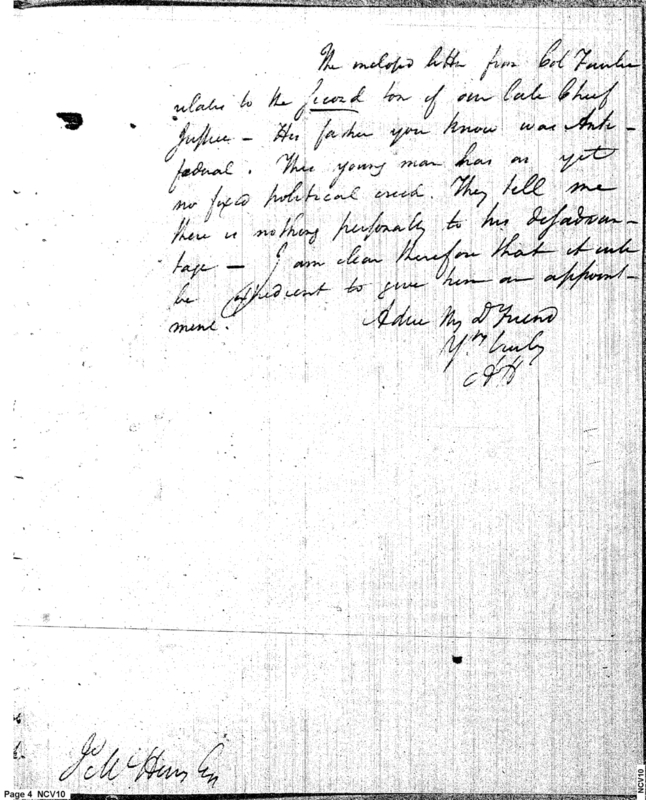 The enclosed letter from Col Fowler
relates to the second son of our late Chief
Justice — His father you know was Anti-
federal. This young man has as yet
no fixed political creed. They tell me
there is nothing personally to his disadvan-
tage — I am clear therefore that it will
be expedient to give him an appoint-
ment.
Adieu My Dr Friend
Yrs truly
A H
Js McHenry Esq
Page 4 NCV10
NCV10